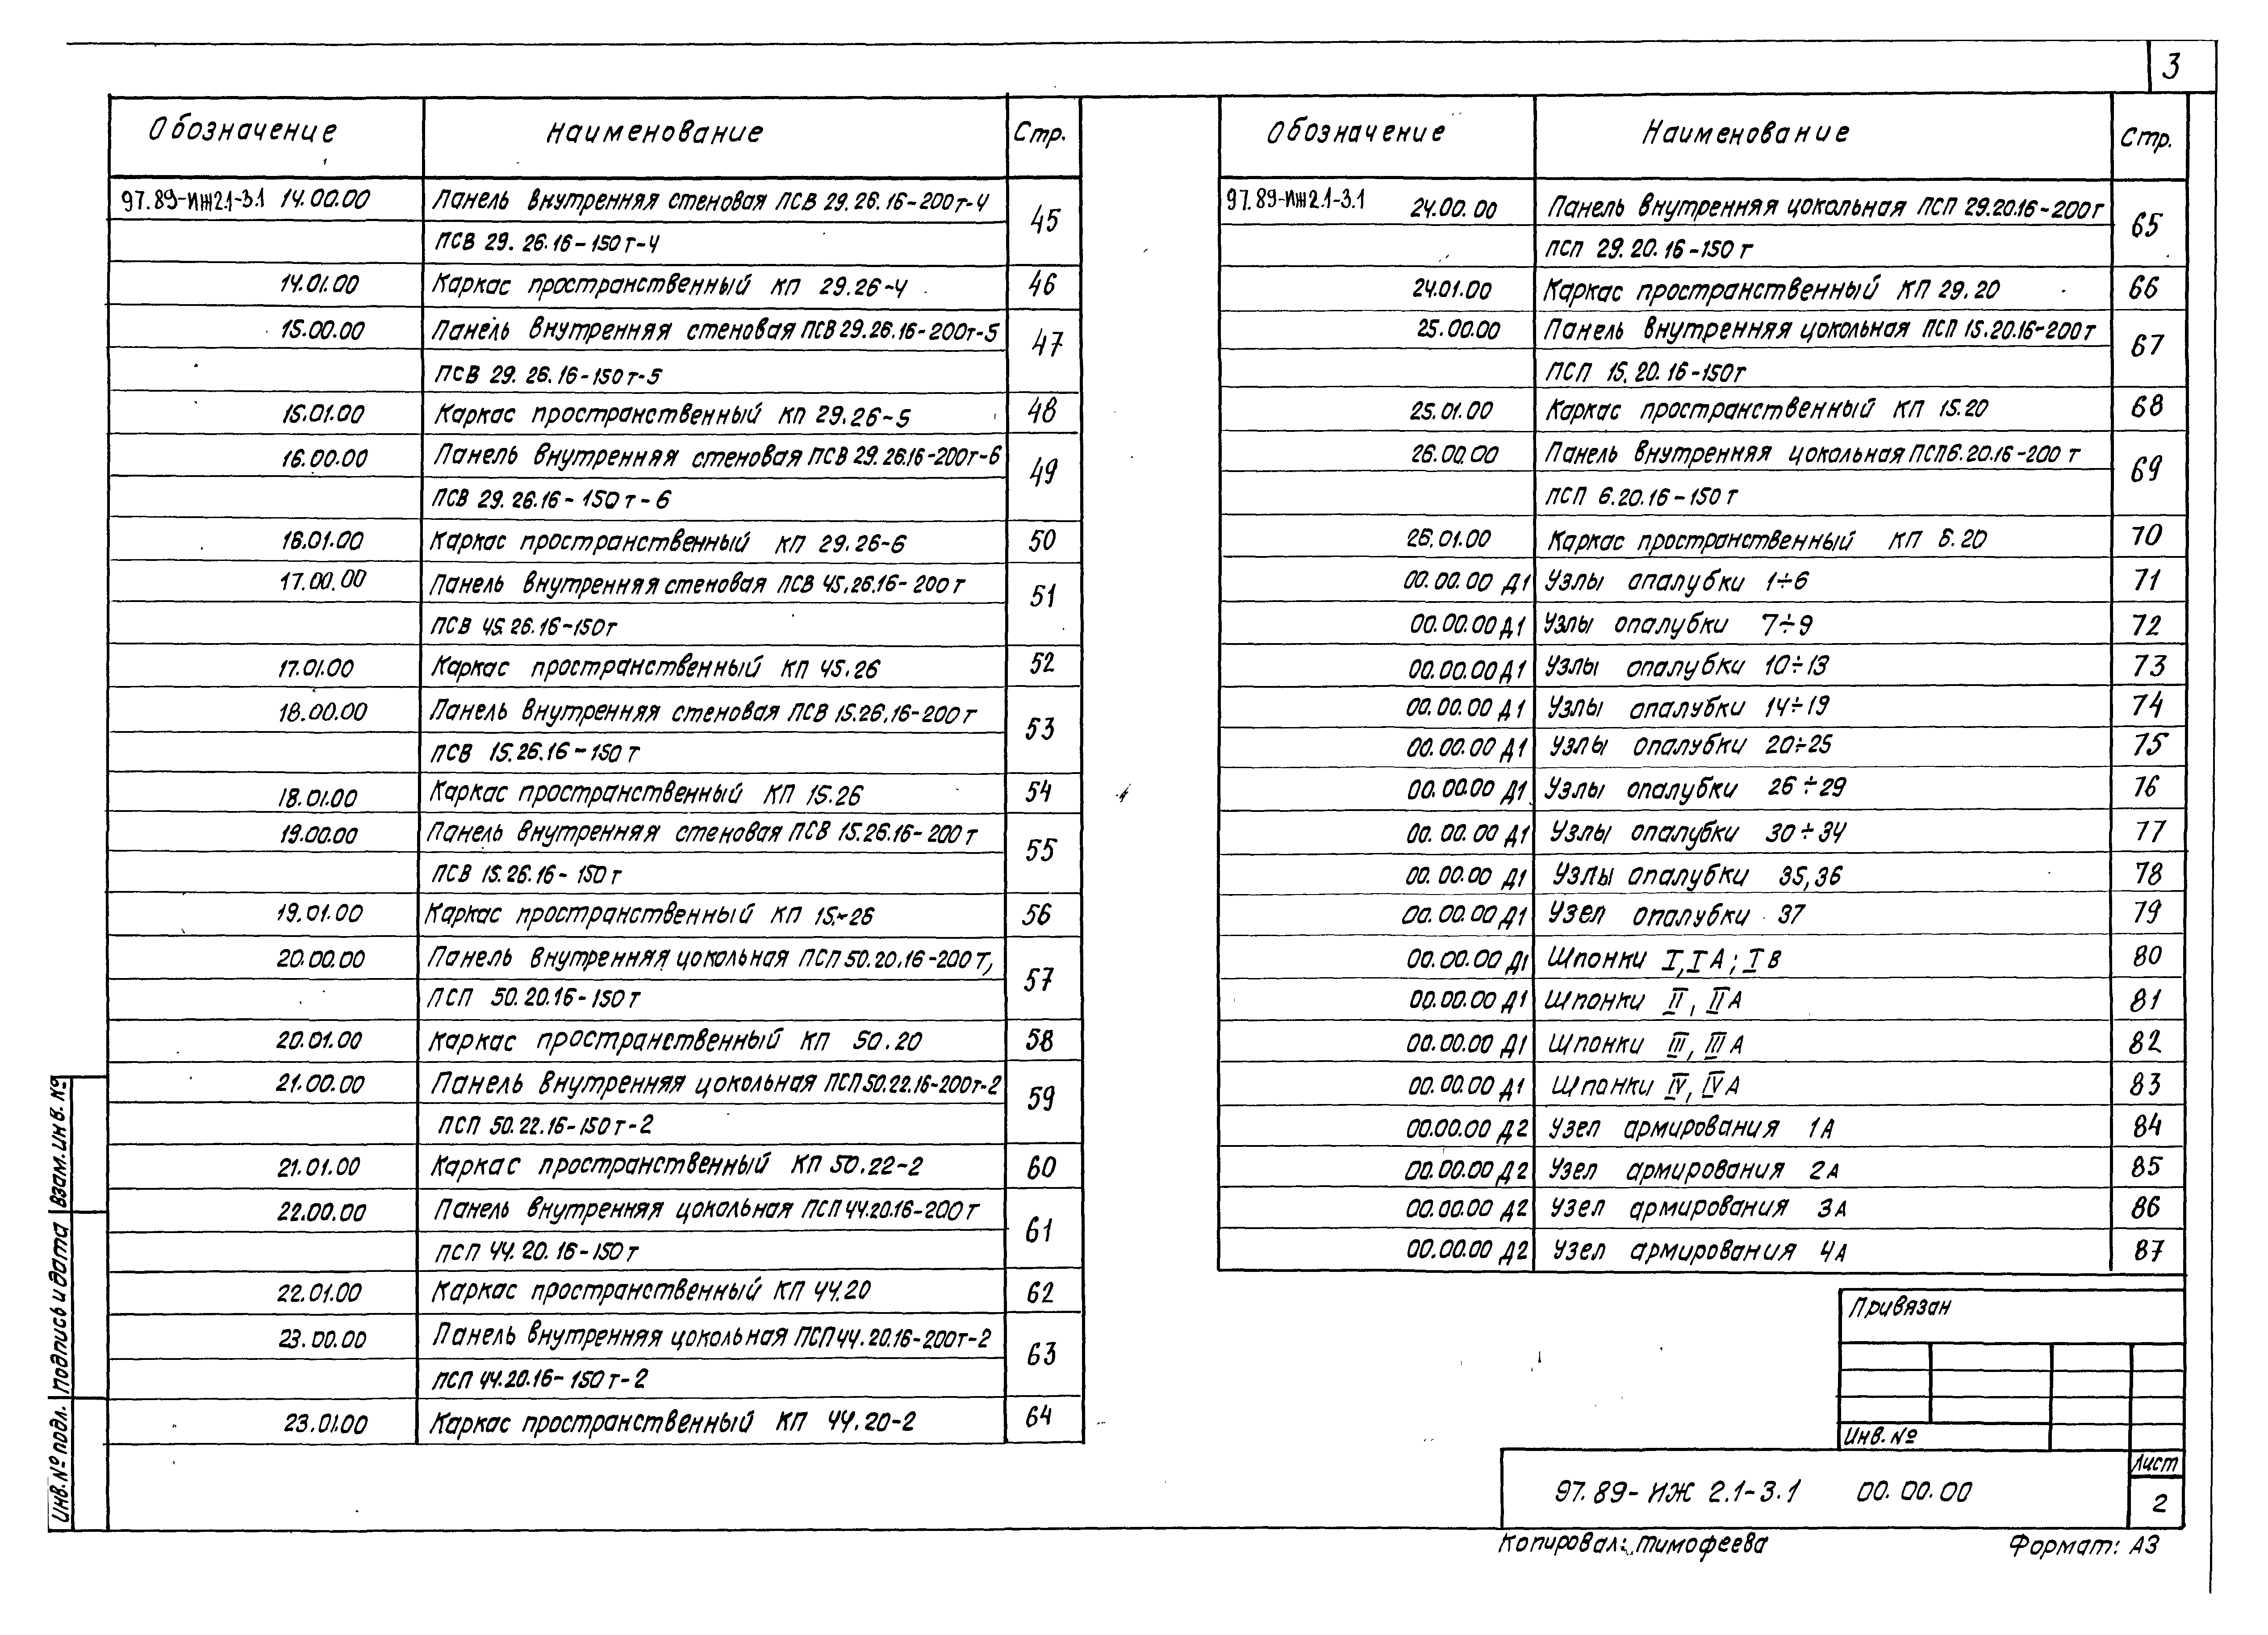 3
Обозначение Наименование Стр.
97.89-ИЖ2.1-3.1 14.00.00 Панель внутренняя стеновая ПСВ 29.26.16-200т-4 45
ПСВ 29.26.16-150т-4
14.01.00 Каркас пространственный КП 29.26-4 46
15.00.00 Панель внутренняя стеновая ПСВ 29.26.16-200т-5 47
ПСВ 29.26.16-150т-5
15.01.00 Каркас пространственный КП 29.26-5 48
16.00.00 Панель внутренняя стеновая ПСВ 29.26.16-200т-6 49
ПСВ 29.26.16-150т-6
16.01.00 Каркас пространственный КП 29.26-6 50
17.00.00 Панель внутренняя стеновая ПСВ 45.26.16-200т 51
ПСВ 45.26.16-150т
17.01.00 Каркас пространственный КП 45.26 52
18.00.00 Панель внутренняя стеновая ПСВ 15.26.16-200т 53
ПСВ 15.26.16-150т
18.01.00 Каркас пространственный КП 15.26 54
19.00.00 Панель внутренняя стеновая ПСВ 15.26.16-200т 55
ПСВ 15.26.16-150т
19.01.00 Каркас пространственный КП 15.-26 56
20.00.00 Панель внутренняя цокольная ПСП 50.20.16-200т, 57
ПСП 50.20.16-150т
20.01.00 Каркас пространственный КП 50.20 58
21.00.00 Панель внутренняя цокольная ПСП 50.22.16-200т-2 59
ПСП 50.22.16-150т-2
21.01.00 Каркас пространственный КП 50.22-2 60
22.00.00 Панель внутренняя цокольная ПСП 44.20.16-200т 61
ПСП 44.20.16-150т
22.01.00 Каркас пространственный КП 44.20 62
23.00.00 Панель внутренняя цокольная ПСП 44.20.16-200т-2 63
ПСП 44.20.16-150т-2
23.01.00 Каркас пространственный КП 44.20-2 64
Обозначение Наименование Стр.
97.89-ИЖ2.1-3.1 24.00.00 Панель внутренняя цокольная ПСП 29.20.16-200т 65
ПСП 29.20.16-150т
24.01.00 Каркас пространственный КП 29.20 66
25.00.00 Панель внутренняя цокольная ПСП 15.20.16-200т 67
ПСП 15.20.16-150т
25.01.00 Каркас пространственный КП 15.20 68
26.00.00 Панель внутренняя цокольная ПСП 6.20.16-200т 69
ПСП 6.20.16-150т
26.01.00 Каркас пространственный КП 6.20 70
00.00.00 Д1 Узлы опалубки 1÷6 71
00.00.00 Д1 Узлы опалубки 7÷9 72
00.00.00 Д1 Узлы опалубки 10÷13 73
00.00.00 Д1 Узлы опалубки 14÷19 74
00.00.00 Д1 Узлы опалубки 20÷25 75
00.00.00 Д1 Узлы опалубки 26÷29 76
00.00.00 Д1 Узлы опалубки 30÷34 77
00.00.00 Д1 Узлы опалубки 35,36 78
00.00.00 Д1 Узел опалубки 37 79
00.00.00 Д1 Шпонки I, I А; I В 80
00.00.00 Д1 Шпонки II, II А 81
00.00.00 Д1 Шпонки III, III А 82
00.00.00 Д1 Шпонки IV, IV А 83
00.00.00 Д2 Узел армирования 1А 84
00.00.00 Д2 Узел армирования 2А 85
00.00.00 Д2 Узел армирования 3А 86
00.00.00 Д2 Узел армирования 4А 87
Привязан
Инв. №
97.89-ИЖ 2.1-3.1 00.00.00
Лист
2
Копировал: Тимофеева Формат: А3
Инв. № подл. Подпись и дата Взам. инв. №